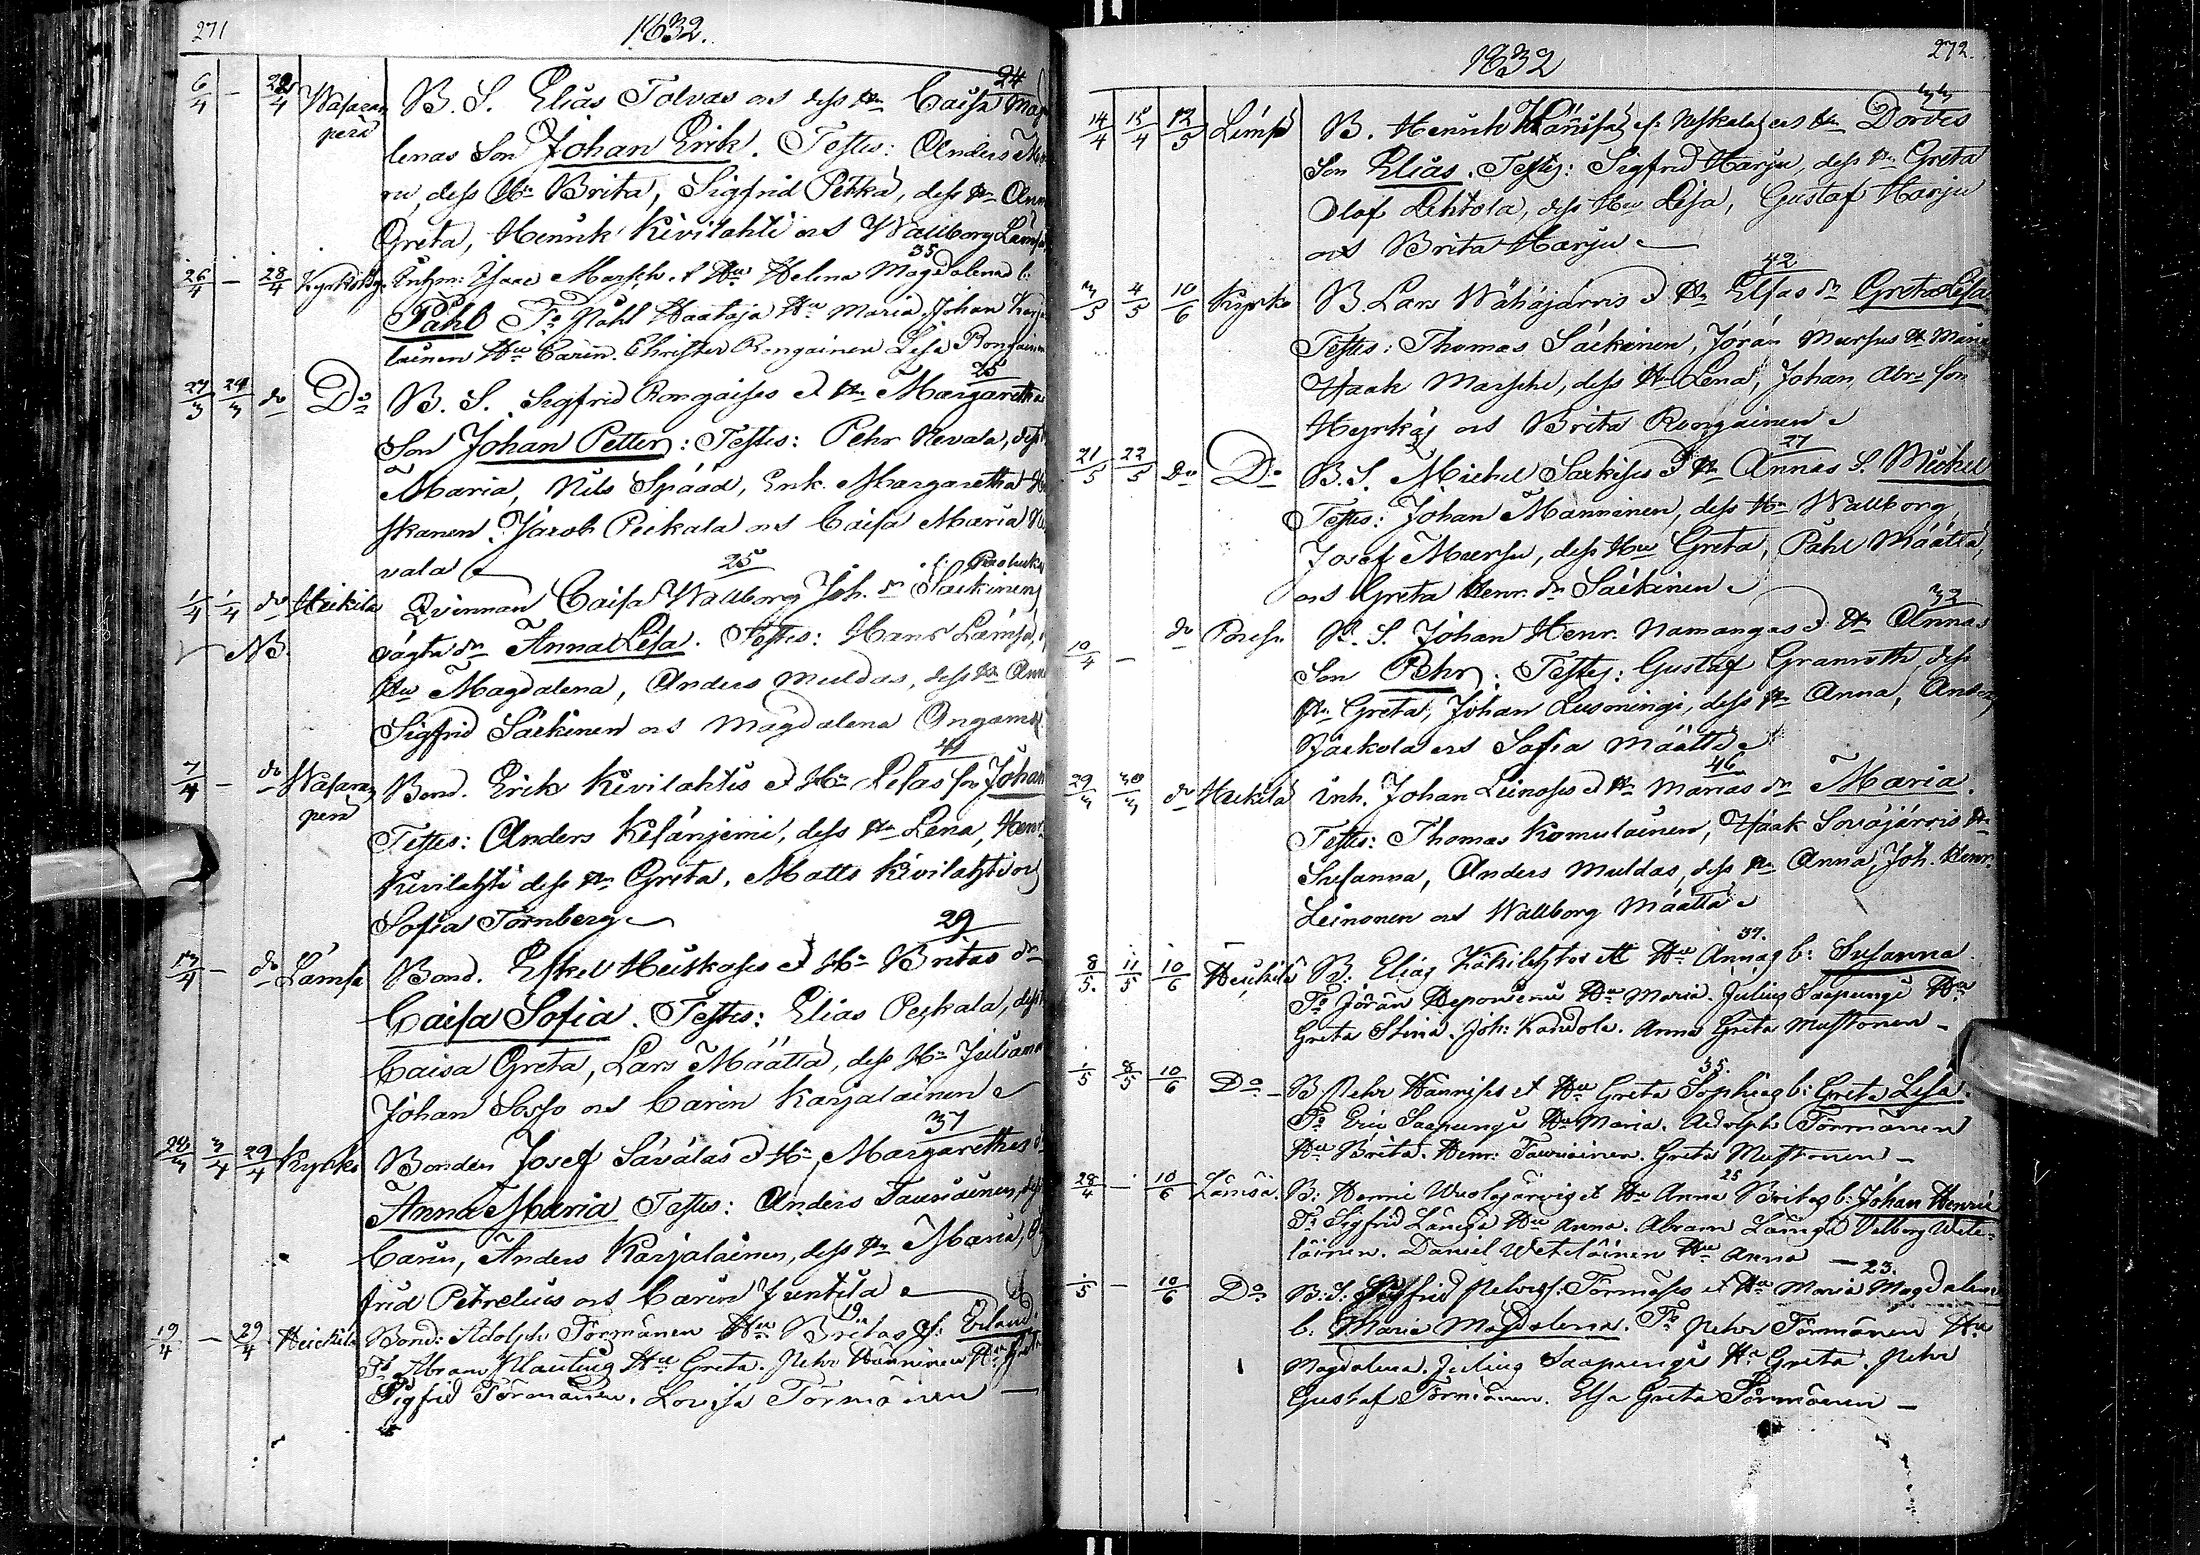 271
1832.
6/4 — 22/4 Wasaran B. S. Elias Tolvas och dess Hu Caisa Mag 24
perä lenas Son Johan Erik. Testes: Anders
ru, dess Hu Brita, Sigfrid Petka, dess Hu Ann
Greta, Henrik Kivilahti och Wallborg Lämsä
26/4 — 28/4 Kyrkoby. Inhm: Isaac Marsch. et Hu Helena Magdalena b: 35
Påhl Ts Påhl Haataja Hu Maria. Johan Karja
lainen Hu Carin. Christer Rongainen Lisa Rongainen
27/3 29/3 do Do B. S. Sigfrid Rongaises et Hu Margaretha 25
Son Johan Petter: Testes: Pehr Nevala, dess
Maria, Nils Spååd, Enk. Margaretha
skanen. Jacob Peikala och Caisa Maria Ne
vala
1/4 1/4 do Heikila Qvinnan Caisa Wallborg Joh. dr Säekinens 25
NB. oägta dr Anna Lisa. Testes: Hans Lämsä,
Hu Magdalena, Anders Muldas, dess Hu Anna
Sigfrid Säekinen och Magdalena Ongamo
7/4 — do Wasaran Bond. Erik Kivilahtis et Hu Lisas son Johan 41
perä
Testes: Anders Kesänjemi, dess Hu Lena, Henr.
Kivilahti dess Hu Greta, Matts Kivilahti och
Sofia Törnberg
13/4 — do Lämsä Bond. Eskel Heiskases et Hu Britas dr 29
Caisa Sofia. Testes: Elias Peikala, dess
Caisa Greta, Lars Määttä, dess Hu Juliana
Johan Sorso och Carin Karjalainen
28/3 3/4 29/4 Kyrko Bonden Josef Säväläs et Hu Margarethas 37
Anna Maria Testes: Anders Tauriainen, dess
Carin, Anders Karjalainen, dess Hu Maria,
frid Petrelius och Carin Juntila
19/4 — 29/4 Heickila Bond: Adolph Törmänen Hu Britas g: Erland. 19
Ts Abram Klauting Hu Greta. Pehr Hänninen Hu
Sigfrid Törmänen. Lovisa Törmänen —
272.
1832
14/4 15/4 12/5 Lämsä B. Henrik Hänises f: Neskala och Hu Dordes 33
Son Elias. Testes: Sigfrid Harju, dess Hu Greta
Olof Lehtola, dess Hu Lisa, Gustaf Harju
och Brita Harju
3/5 4/5 10/6 Kyrko B. Lars Wähäjärvis et Hu Elsas dr Greta Lisa 42
Testes: Thomas Säekinen, Jörän Mursus Hu Maria
Isaak Marsche, dess Hu Lena, Johan Abrs son
Heyrkäs och Brita Rongainen
21/5 22/5 Do Do B. S. Michel Saekises et Hu Annas S. Michel 27
Testes: Johan Männinen, dess Hu Wallborg,
Josef Mursu, dess Hu Greta, Påhl Määttä,
och Greta Henr. dr Saekinen
10/4 — do Poesf. N. S. Johan Henr. Namangas et Hu Annas 32
Son Pehr: Testes: Gustaf Granroth, dess
Hu Greta, Johan Lusmingi, dess Hu Anna, Anders
Jäeskola och Sofia Määttä
29/3 30/3 do Heikilä Inh. Johan Leinoses et Hu Marias dr Maria. 46
Testes: Thomas Komulainen, Isaak Soväjärvis Hu
Susanna, Anders Muldas, dess Hu Anna, Joh. Henr.
Leinonen och Wallborg Määttä
8/5. 11/5 10/6 Heickilä B: Elias Käkilahtos et Hu Annas b: Susanna. 37.
Ts Jörän Heponiemi Hu Maria. Julius Saapungi Hu
Greta Stina. Joh: Kandola. Anna Greta Mustonen —
1/5 8/5 10/6 Do — B Pehr Hännises et Hu Greta Sophias b: Greta Lisa. 35.
Ts Eric Saapungi Hu Maria. Adolph Törmänen
Hu Brita. Henr: Tauriainen. Greta Mustonen —
28/4 — 10/6 Lämsä. B: Henric Wuolajärvis et Hu Anna Britas b: Johan Henric 25
Ts Sigfrid Lämsä Hu Anna. Abram Lämsä Valborg Wete-
läinen. Daniel Weteläinen Hu Anna —
1/5 — 10/6 Do B: S: Sigfrid Pehrs: Törmäses et Hu Maria Magdalena 23.
b: Maria Magdalena. Ts Pehr Törmänen Hu
Magdalena. Julius Saapungi Hu Greta. Pehr
Gustaf Törmänen. Elsa Greta Törmänen —